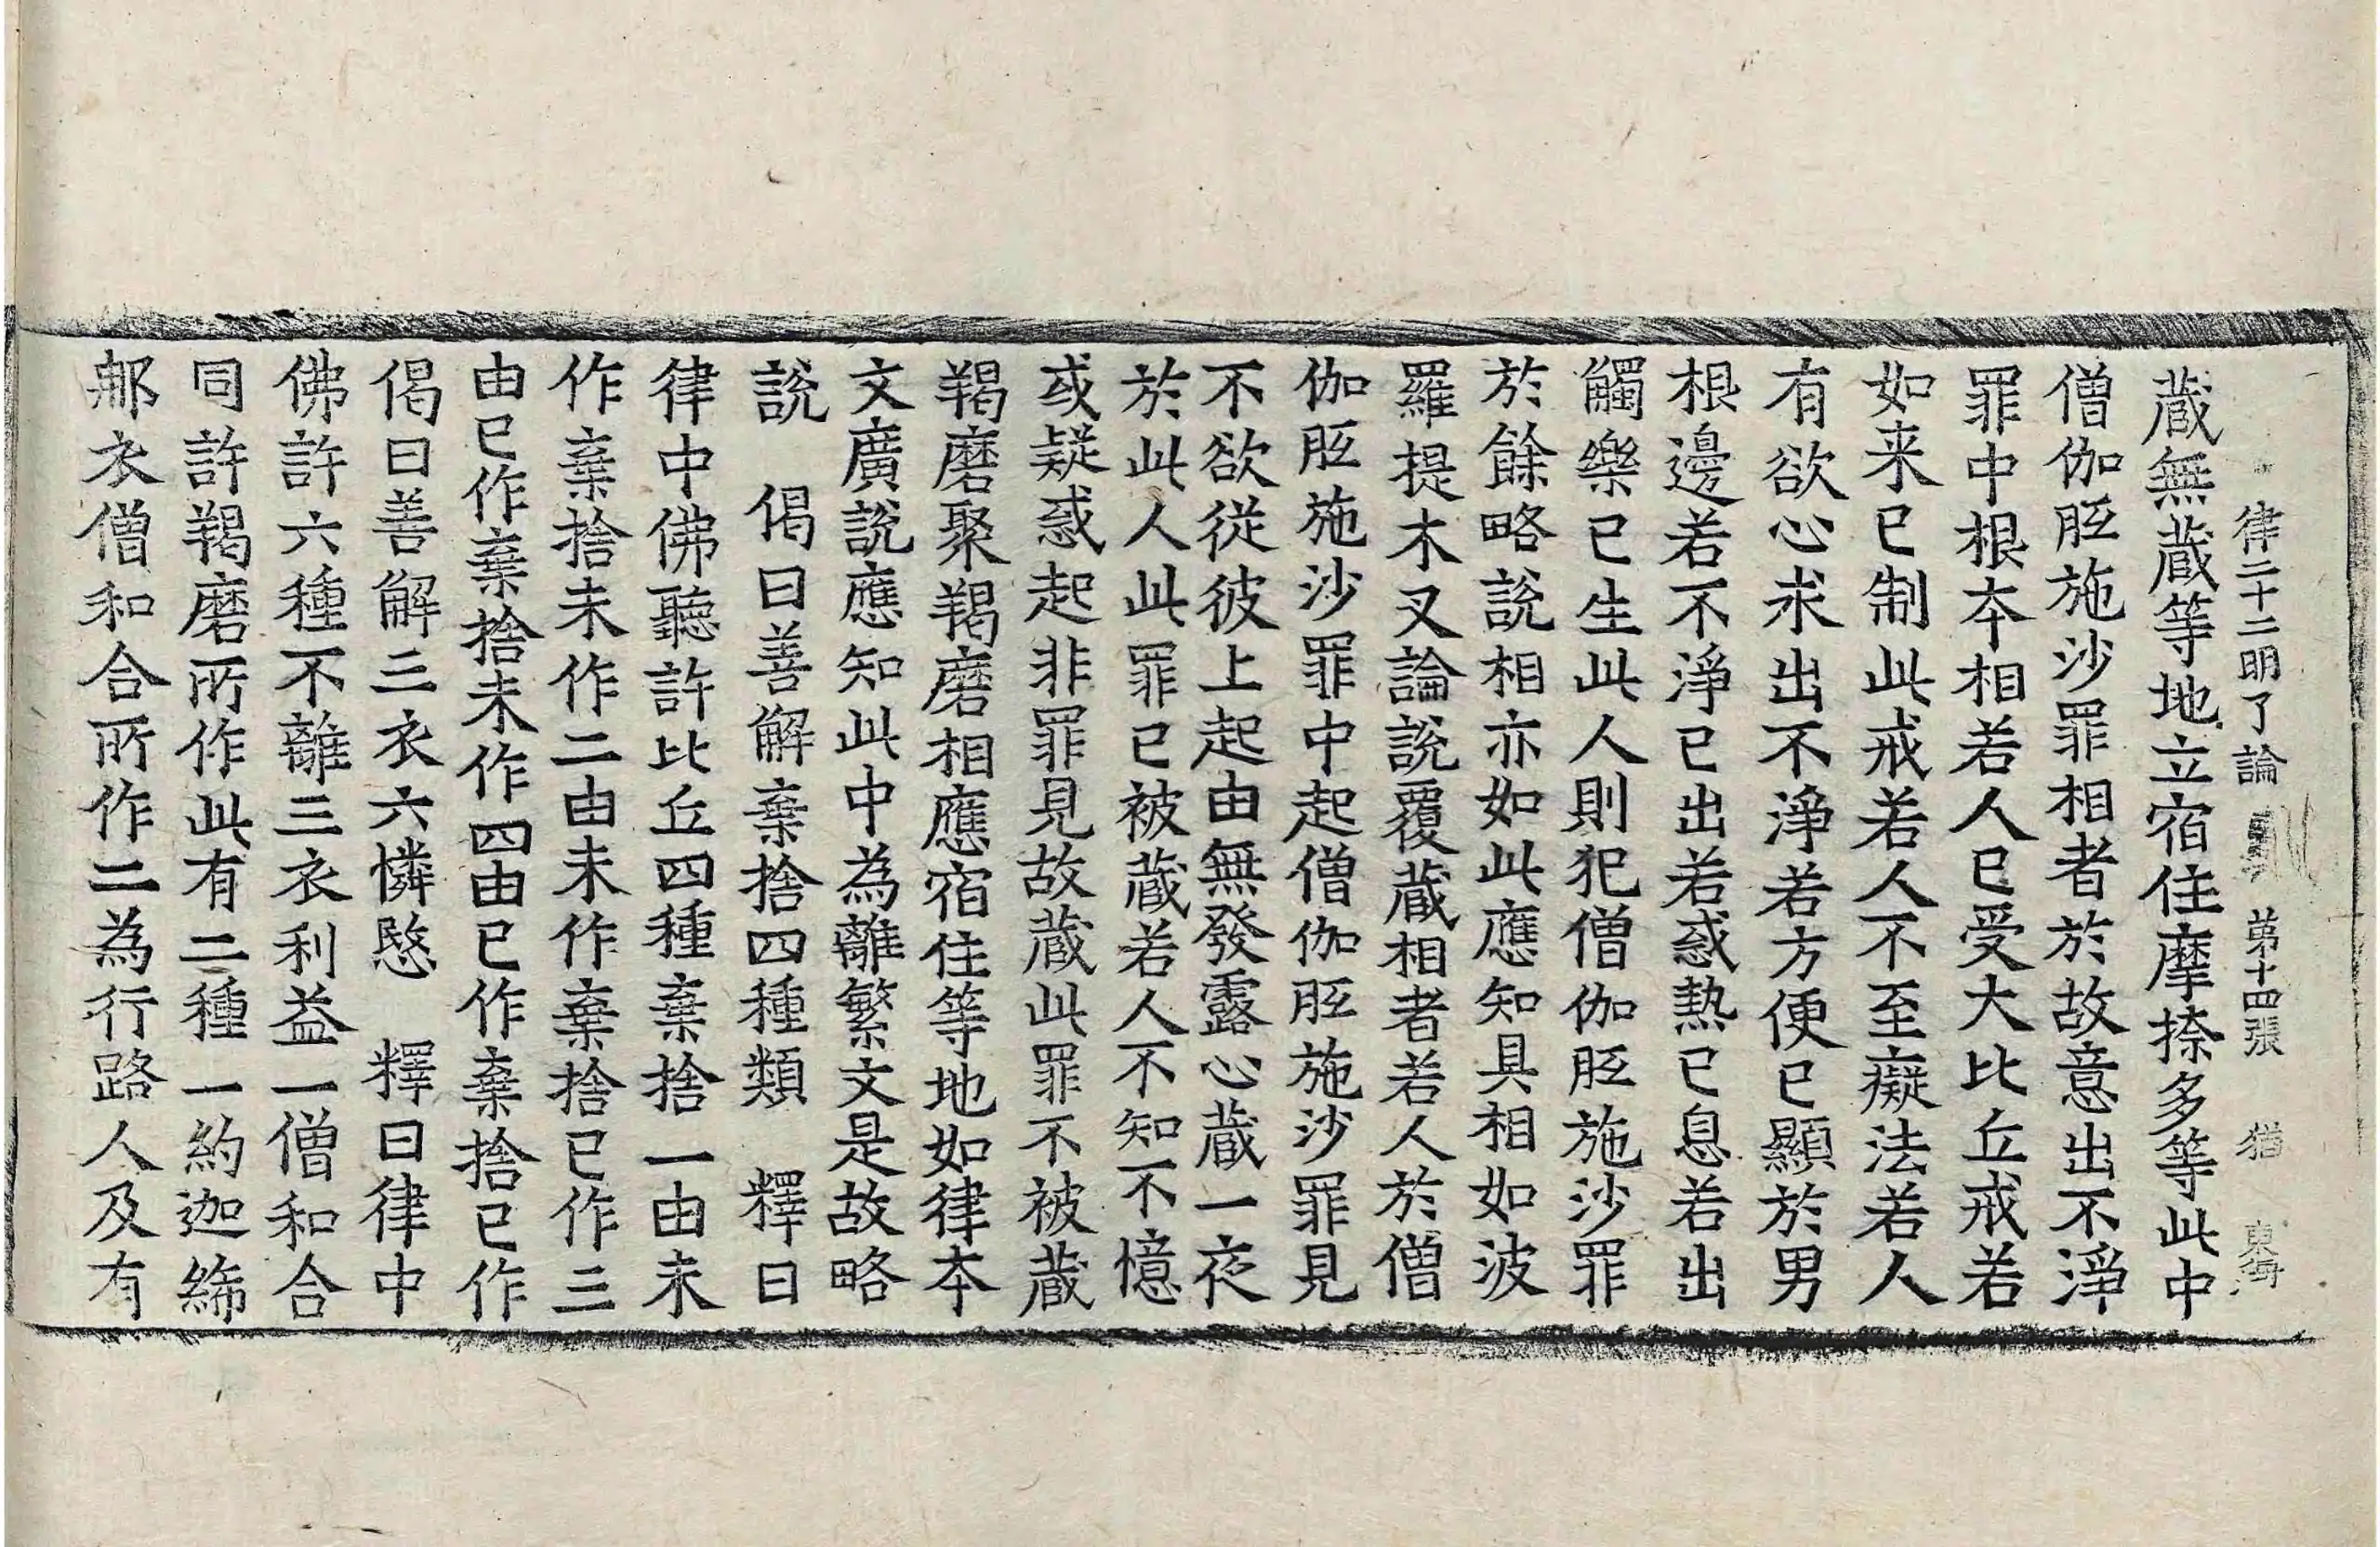 律二十二明了論 第十四張 猶 東
蔵無蔵等地立宿住摩捺多等此中
僧伽胝施沙罪相者於故意出不淨
罪中根本相若人已受大比丘戒若
如来已制此戒若人不至癡法若人
有欲心求出不淨若方便已顯於男
根邊若不淨已出若惑熱已息若出
觸樂已生此人則犯僧伽胝施沙罪
於餘略說相亦如此應知具相如波
羅提木叉論說覆蔵相者若人於僧
伽胝施沙罪中起僧伽胝施沙罪見
不欲從彼上起由無發露心蔵一夜
於此人此罪已被蔵若人不知不憶
或疑惑起非罪見故蔵此罪不被蔵
羯磨聚羯磨相應宿住等地如律本
文廣說應知此中為離繁文是故略
說 偈曰善解棄捨四種類 釋曰
律中佛聽許比丘四種棄捨一由未
作棄捨未作二由未作棄捨已作三
由已作棄捨未作四由已作棄捨已作
偈曰善解三衣六憐愍 釋曰律中
佛許六種不離三衣利益一僧和合
同許羯磨所作此有二種一約迦絺
那衣僧和合所作二為行路人及有